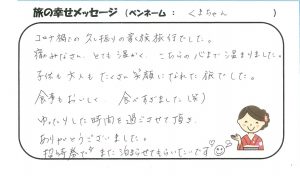 旅の幸せメッセージ（ペンネーム： くまちゃん ）
コロナ禍での久し振りの家族旅行でした。
皆みなさん、とても温かく、こちらの心まで温まりました。
子供も大人もたくさん笑顔になれた旅でした。
食事もおいしくて、食べすぎました(笑)
ゆったりした時間を過ごさせて頂き、
ありがとうございました。
招待券でまた泊らせてもらいたいです